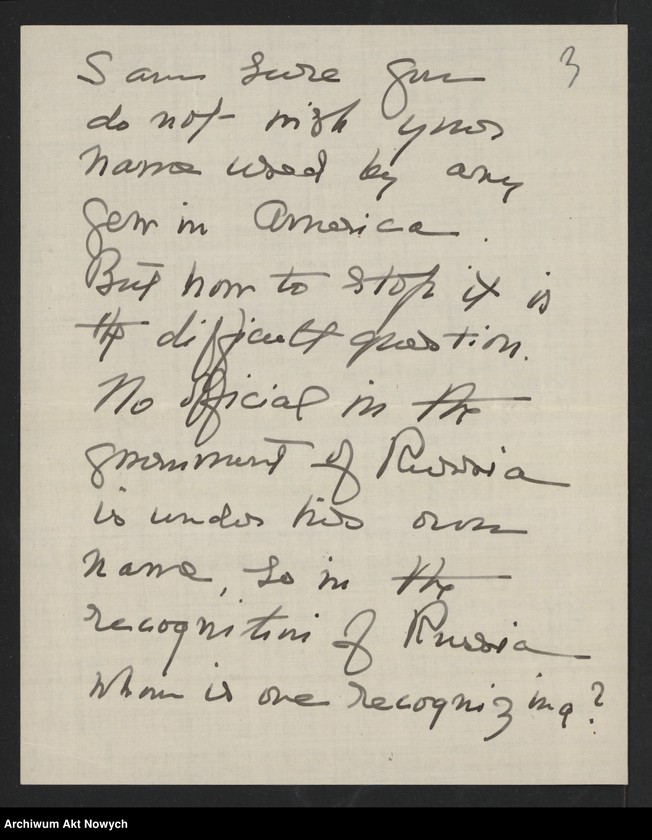 3
I am sure you
do not wish your
name used by any
Jew in America.
But how to stop it is
the difficult question.
No official in the
government of Russia
is under his own
name, so in the
recognition of Russia
whom is one recognizing?
Archiwum Akt Nowych